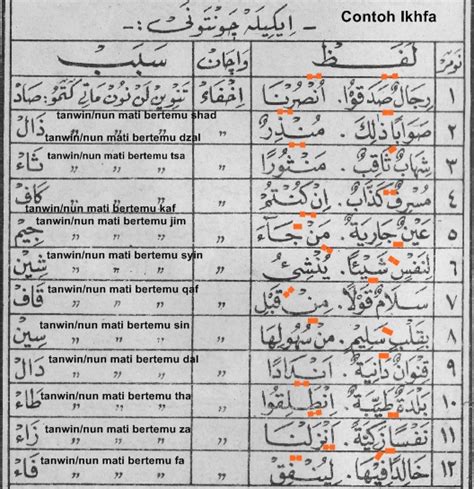 Contoh Ikhfa
- ايكيله چونتوني :-
نومر لفظ واچان سبب
١ رِجَالٌ صَدَقُوْا. اُنْصُرْنَا اِخْفَاءْ تنوين لن نون ماتي كتمو: صاد
tanwin/nun mati bertemu shad
٢ صَوَابًا ذٰلِكَ. مُنْذِرُ „ „ „ „ ذَالْ
tanwin/nun mati bertemu dzal
٣ شِهَابٌ ثَاقِبٌ. مَنْثُوْرًا „ „ „ „ ثَاءْ
tanwin/nun mati bertemu tsa
٤ مُسْرِفٌ كَذَّابٌ. اِنْ كُنْتُمْ „ „ „ „ كَافْ
tanwin/nun mati bertemu kaf
٥ عَيْنٌ جَارِيَةٌ. مَنْ جَآءَ „ „ „ „ جِيْمْ
tanwin/nun mati bertemu jim
٦ لِنَفْسٍ شَيْئًا. يُنْشِئُ „ „ „ „ شِيْنْ
tanwin/nun mati bertemu syin
٧ سَلَامٌ قَوْلًا. مِنْ قَبْلُ „ „ „ „ قَافْ
tanwin/nun mati bertemu qaf
٨ بِقَلْبٍ سَلِيْمٍ. مِنْ سُهُوْلِهَا „ „ „ „ سِيْنْ
tanwin/nun mati bertemu sin
٩ قِنْوَانٌ دَانِيَةٌ. اَنْدَادًا „ „ „ „ دَالْ
tanwin/nun mati bertemu dal
١٠ بَلْدَةٌ طَيِّبَةٌ. اِنْطَلِقُوْا „ „ „ „ طَاءْ
tanwin/nun mati bertemu tha
١١ نَفْسًا زَكِيَّةً. اَنْزَلْنَا „ „ „ „ زَاءْ
tanwin/nun mati bertemu za
١٢ خَالِدًا فِيْهَا. لِيُنْفِقْ „ „ „ „ فَاءْ
tanwin/nun mati bertemu fa